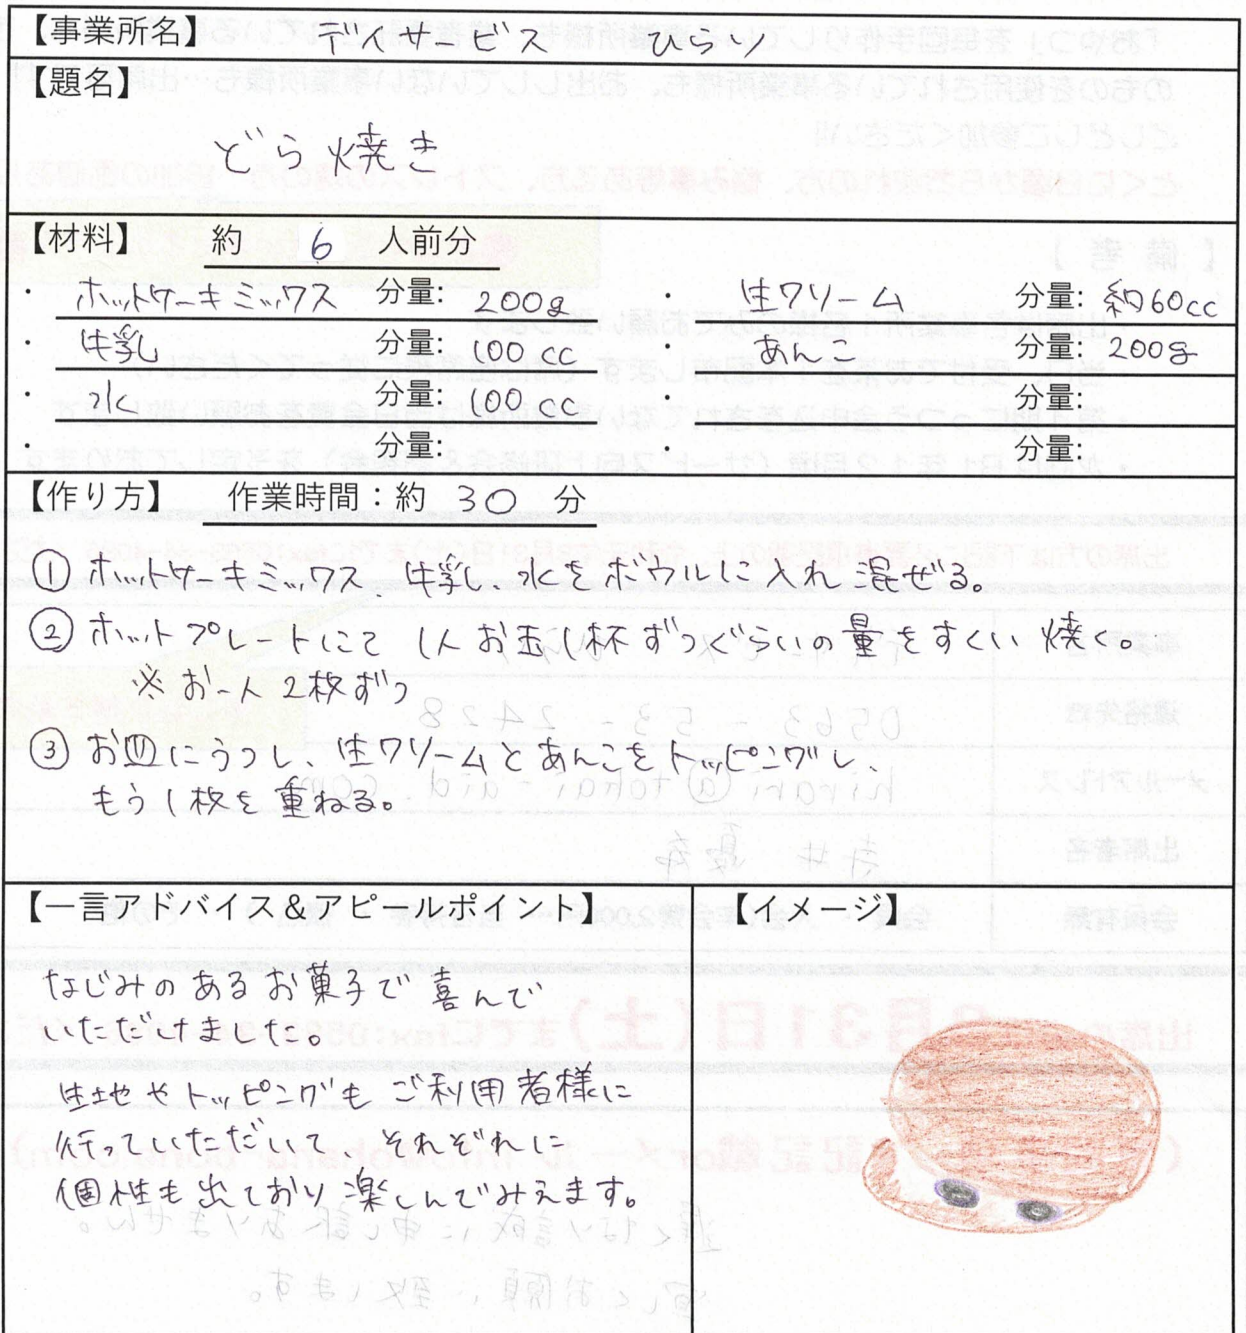 【事業所名】 デイサービス ひらり
【題名】
どら焼き
【材料】 約 6 人前分
・ ホットケーキミックス 分量: 200g ・ 生クリーム 分量: 約60cc
・ 牛乳 分量: 100cc ・ あんこ 分量: 200g
・ 水 分量: 100cc ・ 分量:
・ 分量: ・ 分量:
【作り方】 作業時間：約 30 分
① ホットケーキミックス、牛乳、水をボウルに入れ混ぜる。
② ホットプレートにて 1人お玉1杯ずつぐらいの量をすくい焼く。
※お一人2枚ずつ
③ お皿にうつし、生クリームとあんこをトッピングし、
もう1枚を重ねる。
【一言アドバイス＆アピールポイント】 【イメージ】
なじみのあるお菓子で喜んで
いただけました。
生地やトッピングもご利用者様に
行っていただいて、それぞれに
個性も出ており楽しんでみえます。